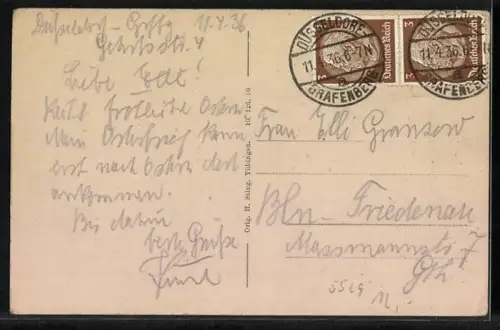 Düsseldorf - Grfbg 11.4.36
Liebe Elli!
Recht fröhliche Ostern
Mein Osterbrief kann
erst nach Ostern dort
ankommen.
Bis dahin
beste Grüße
DÜSSELDORF
11.4.36.6-7N
a
GRAFENBERG
Deutsches Reich
3
DÜSSELDORF
11.4.36.6-7N
a
GRAFENBERG
Deutsches Reich
3
Orig. H. Sting, Tübingen.
Frau Elli Gransow
Bln - Friedenau
Massmannstr. 7
Gth.
5529